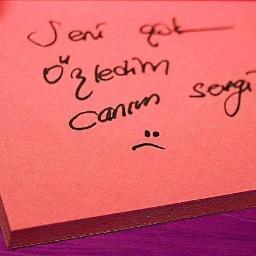 Seni çok
Özledim
Canım sevgi